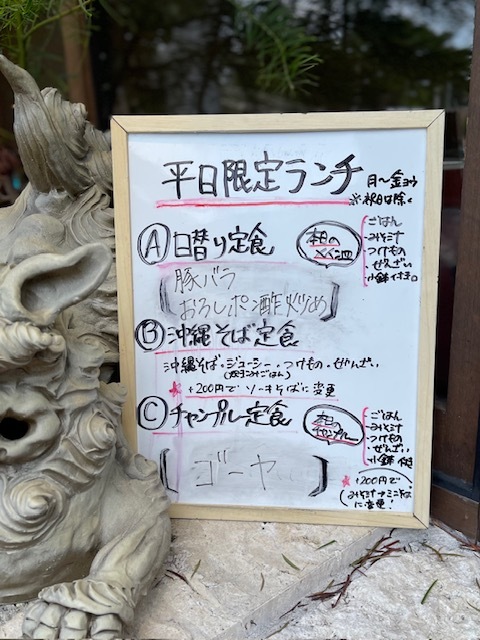 平日限定ランチ
月～金ヨウ
※祝日は除く
Ⓐ日替り定食
本日の
ごはん
みそ汁
つけもの
ぜんざい
小鉢付き。
豚バラ
おろしポン酢炒め
Ⓑ沖縄そば定食
沖縄そば・ジューシー・つけもの・ぜんざい
★+200円でソーキそばに変更
Ⓒチャンプル定食
本日の
チャンプルー
ごはん
みそ汁
つけもの
ぜんざい
小鉢付き
[ゴーヤ]
★+200円で
みそ汁→ミニそば
に変更!